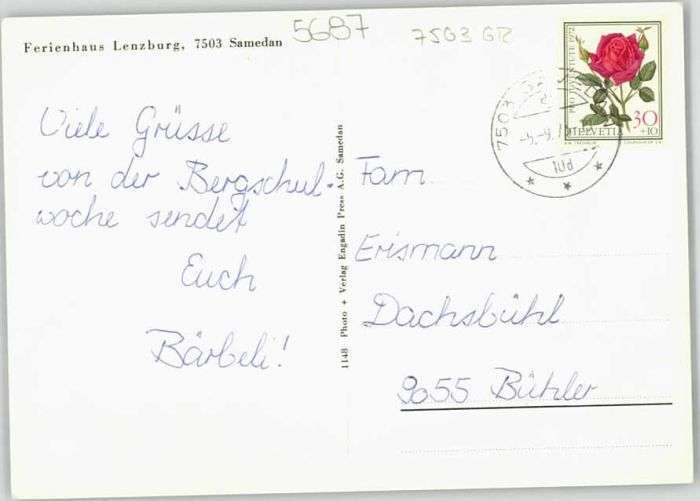 Ferienhaus Lenzburg, 7503 Samedan
5687
7503 GR
Viele Grüsse
von der Bergschul-
woche sendet
Euch
Bärbeli!
1148 Photo + Verlag Engadin Press A.G. Samedan
PRO JUVENTUTE 1972
30
+10
HELVETIA
7503
-5.-9.7
Fam.
Erismann
Dachsbühl
9055 Bühler